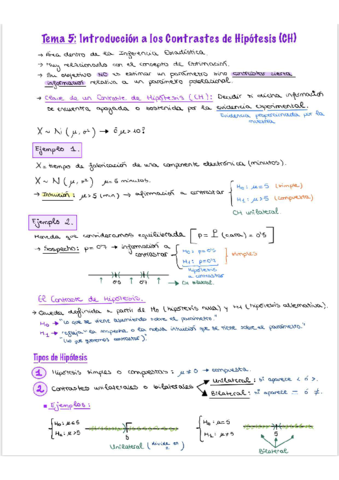 Tema 5: Introducción a los Contrastes de Hipótesis (CH)
→ Área dentro de la Inferencia Estadística.
→ Muy relacionada con el concepto de Estimación.
→ Su objetivo NO es estimar un parámetro sino contrastar cierta
información relativa a un parámetro poblacional.
→ Clave de un Contraste de Hipótesis (CH): Decidir si alguna información
se encuentra apoyada o sostenida por la evidencia experimental.
Evidencia proporcionada por la
muestra
X ~ N (μ, σ²) → ¿μ
Ejemplo 1.
X = tiempo de fabricación de una componente electrónica (minutos).
X ~ N (μ, σ²) μ = 5 minutos.
→ Intuición: μ > 5 (min) → afirmación a contrastar
H₀: μ = 5 (simple)
H₁: μ > 5 (compuesta)
CH unilateral
Ejemplo 2.
Moneda que consideramos equilibrada [p = P (cara) = 0'5]
→ Sospecho: p = → información a contrastar
H₀: p = 0'5
H₁: p =
simples
Hipótesis a contrastar
CH
El Contraste de Hipótesis.
→ Queda definido a partir de H₀ (hipótesis nula) y H₁ (hipótesis alternativa).
H₀ → "Lo que se viene asumiendo sobre el parámetro."
H₁ → "refleja" la sospecha o la nueva intuición que se tiene sobre el parámetro."
(Lo que queremos contrastar)."
Tipos de Hipótesis
1 Hipótesis simples o compuestas: μ ≠ 0 → compuesta.
2 Contrastes unilaterales o bilaterales
Unilateral: si aparece < ó >.
Bilateral: si aparece = ó ≠.
• Ejemplos:
H₀: μ ≤ 5
H₁: μ > 5
5
Unilateral (divide en
H₀: μ = 5
H₁: μ ≠ 5
5
Bilateral